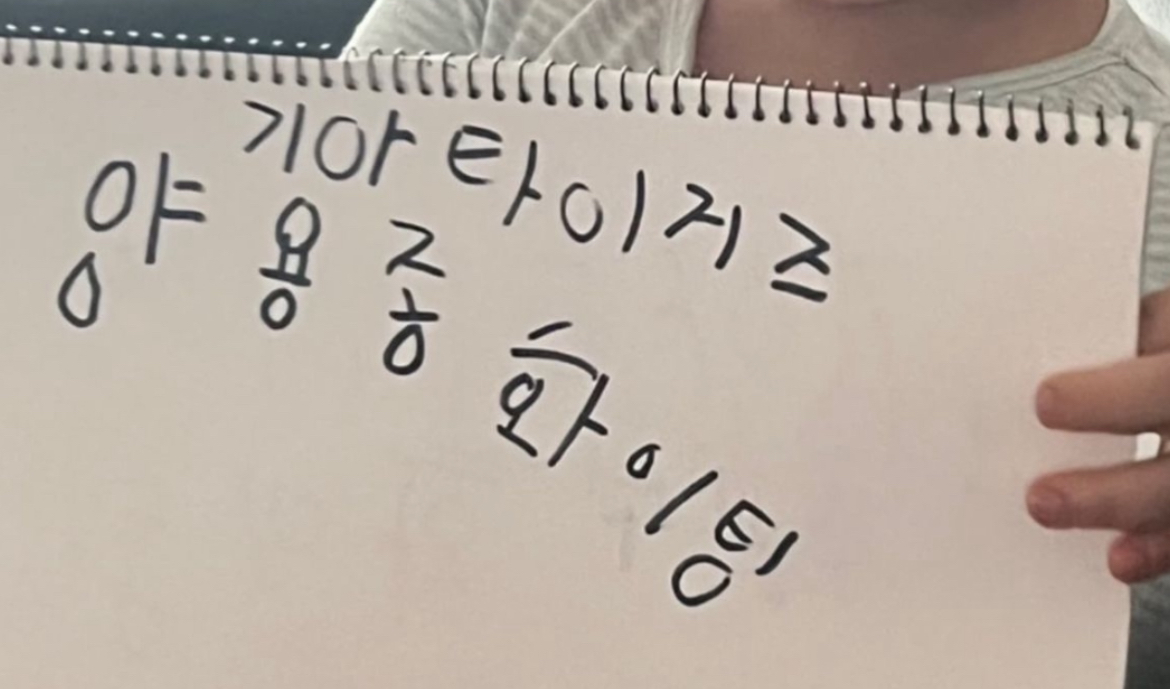 기아 타이지즈
양 용 종 화이팅